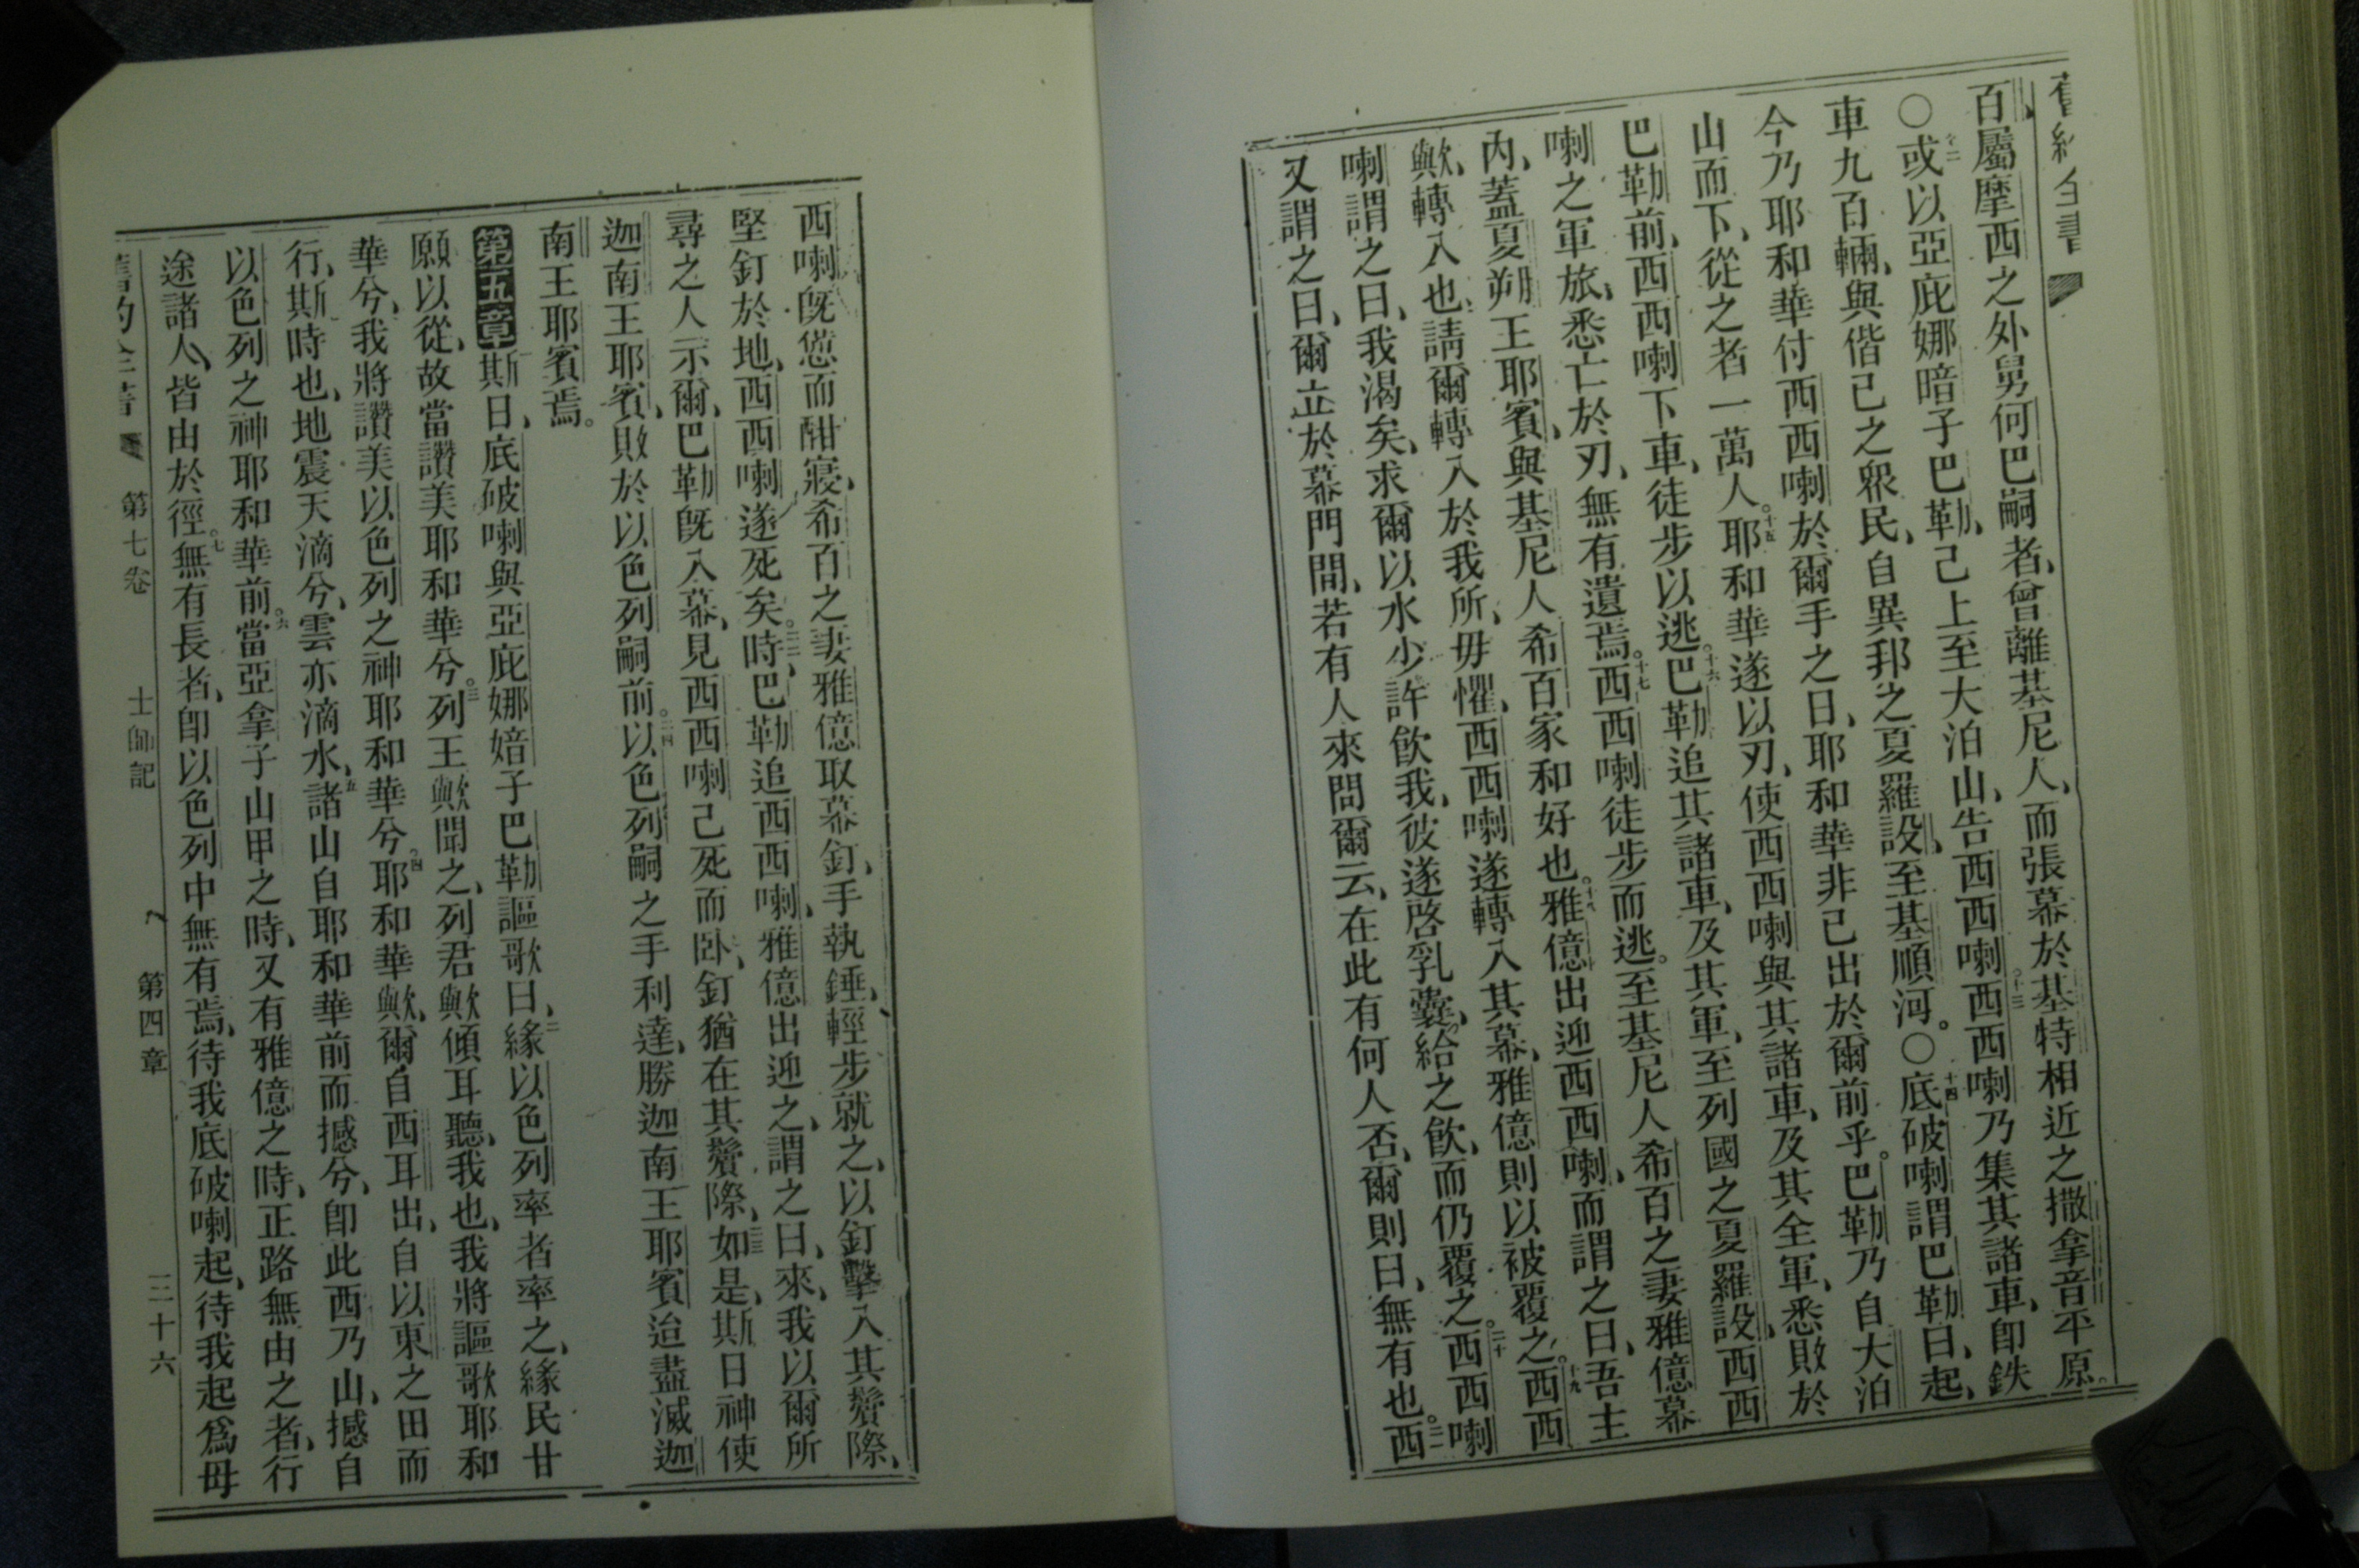 舊約全書
百、屬摩西之外舅何巴嗣者、曾離基尼人、而張幕於基特相近之撒拿音平原。
○十二或以亞庇娜暗子巴勒、己上至大泊山、告西西喇。十三西西喇乃集其諸車、卽鉄
車九百輛、與偕己之眾民、自異邦之夏羅設、至基順河。○十四底破喇謂巴勒曰、起、
今乃耶和華付西西喇於爾手之日、耶和華非已出於爾前乎。巴勒乃自大泊
山而下、從之者一萬人。十五耶和華遂以刃、使西西喇與其諸車、及其全軍、悉敗於
巴勒前、西西喇下車、徒步以逃。十六巴勒追其諸車、及其軍、至列國之夏羅設、西西
喇之軍旅、悉亡於刃、無有遺焉。十七西西喇徒步而逃。至基尼人希百之妻雅億幕
內、蓋夏朔王耶賓、與基尼人希百家和好也。十八雅億出迎西西喇、而謂之曰、吾主
歟、轉入也、請爾轉入於我所、毋懼、西西喇遂轉入其幕、雅億則以被覆之。十九西西
喇謂之曰、我渴矣、求爾以水少許飲我、彼遂啓乳囊、給之飲、而仍覆之。二十西西喇
又謂之曰、爾立於幕門間、若有人來問爾云、在此有何人否、爾則曰、無有也。二一西
西喇旣憊而酣寢、希百之妻雅億取幕釘、手執錘、輕步就之、以釘擊入其鬢際、
堅釘於地、西西喇遂死矣。二二時、巴勒追西西喇、雅億出迎之、謂之曰、來、我以爾所
尋之人示爾、巴勒旣入幕、見西西喇己死而卧、釘猶在其鬢際、二三如是、斯日神使
迦南王耶賓、敗於以色列嗣前。二四以色列嗣之手利達、勝迦南王耶賓、迨盡滅迦
南王耶賓焉。
第五章斯日、底破喇與亞庇娜暗子巴勒謳歌曰、二緣以色列率者率之、緣民甘
願以從、故當讚美耶和華兮。三列王歟聞之、列君歟傾耳聽、我也、我將謳歌耶和
華兮、我將讚美以色列之神耶和華兮。四耶和華歟、爾自西耳出、自以東之田而
行、斯時也、地震天滴兮、雲亦滴水、五諸山自耶和華前而撼兮、卽此西乃山、撼自
以色列之神耶和華前。六當亞拿子山甲之時、又有雅億之時、正路無由之者、行
途諸人、皆由於徑。七無有長者、卽以色列中無有焉、待我底破喇起、待我起爲毋
舊約全書 第七卷 士師記 第四章 三十六